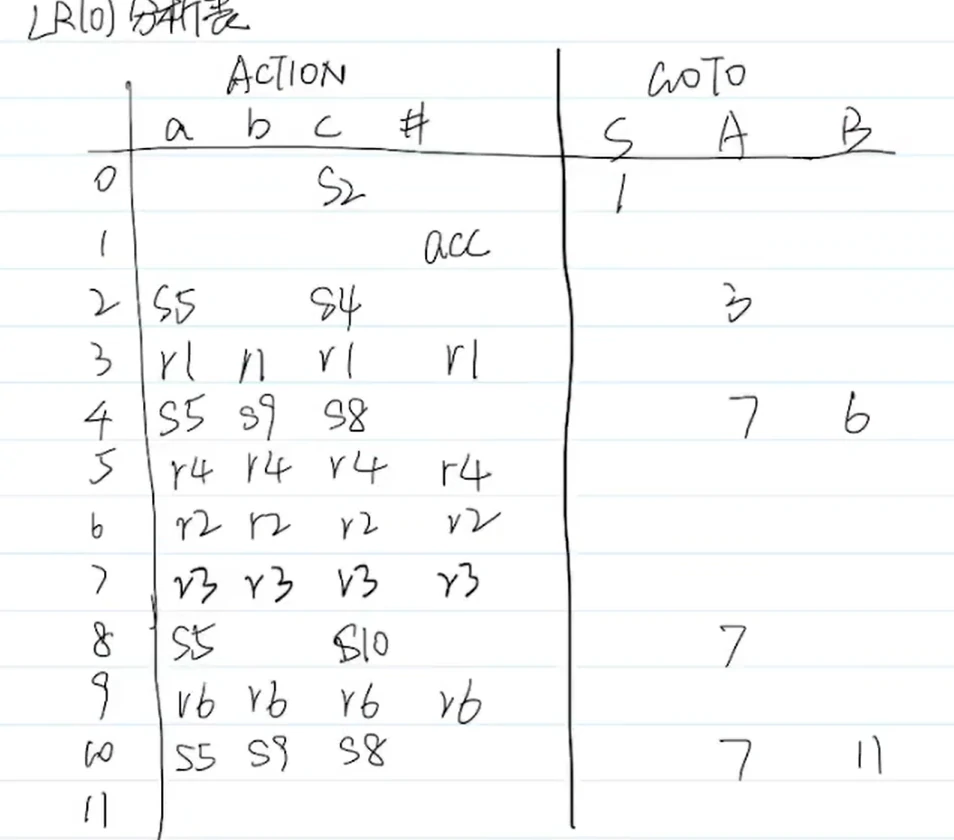 LR(0)分析表
ACTION GOTO
a b c # S A B
0 S2 1
1 acc
2 S5 S4 3
3 r1 r1 r1 r1
4 S5 S9 S8 7 6
5 r4 r4 r4 r4
6 r2 r2 r2 r2
7 r3 r3 r3 r3
8 S5 S10 7
9 r6 r6 r6 r6
10 S5 S9 S8 7 11
11